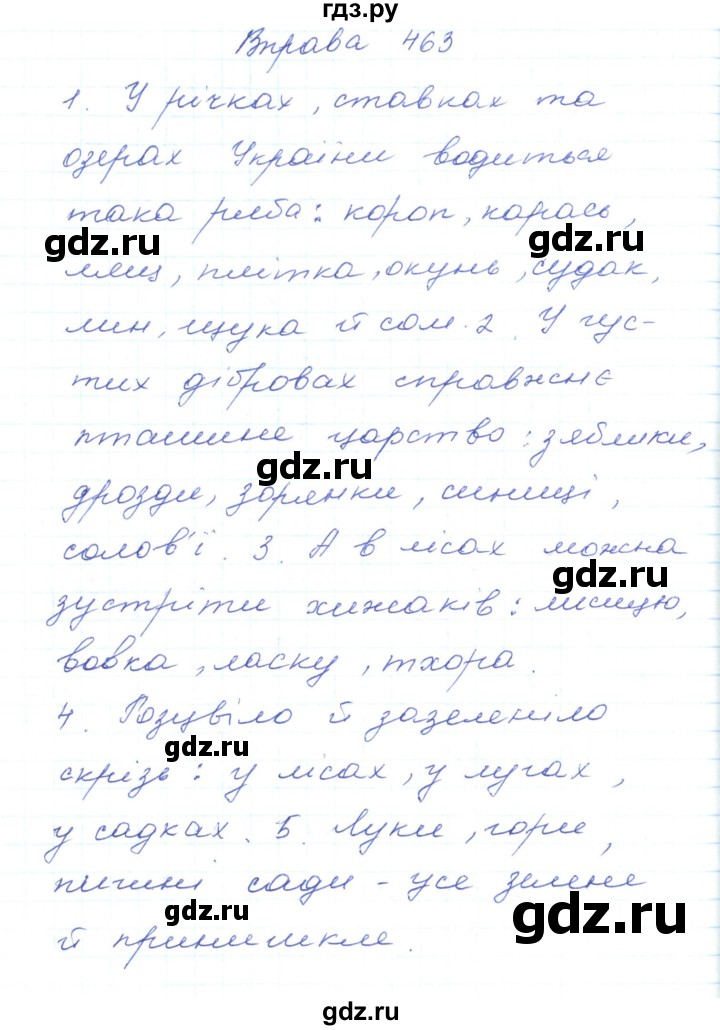 гдз.ру
Вправа 463
1. У річках, ставках та
озерах України водиться
така риба: короп, карась,
gdz.ru gdz.ru
лящ, плітка, окунь, судак,
лин, щука й сом. 2. У гус-
тих дібровах справжнє
пташине царство: зяблики,
gdz.ru
дрозди, зорянки, синиці,
солов'ї. 3. А в лісах можна
gdz.ru
зустріти хижаків: лисицю,
вовка, ласку, тхора.
4. Розцвіло й зазеленіло
gdz.ru
скрізь: у лісах, у лугах,
у садках. 5. Луки, гори,
пишні сади - усе зелене
gdz.ru gdz.ru
й принишкле.
gdz.ru